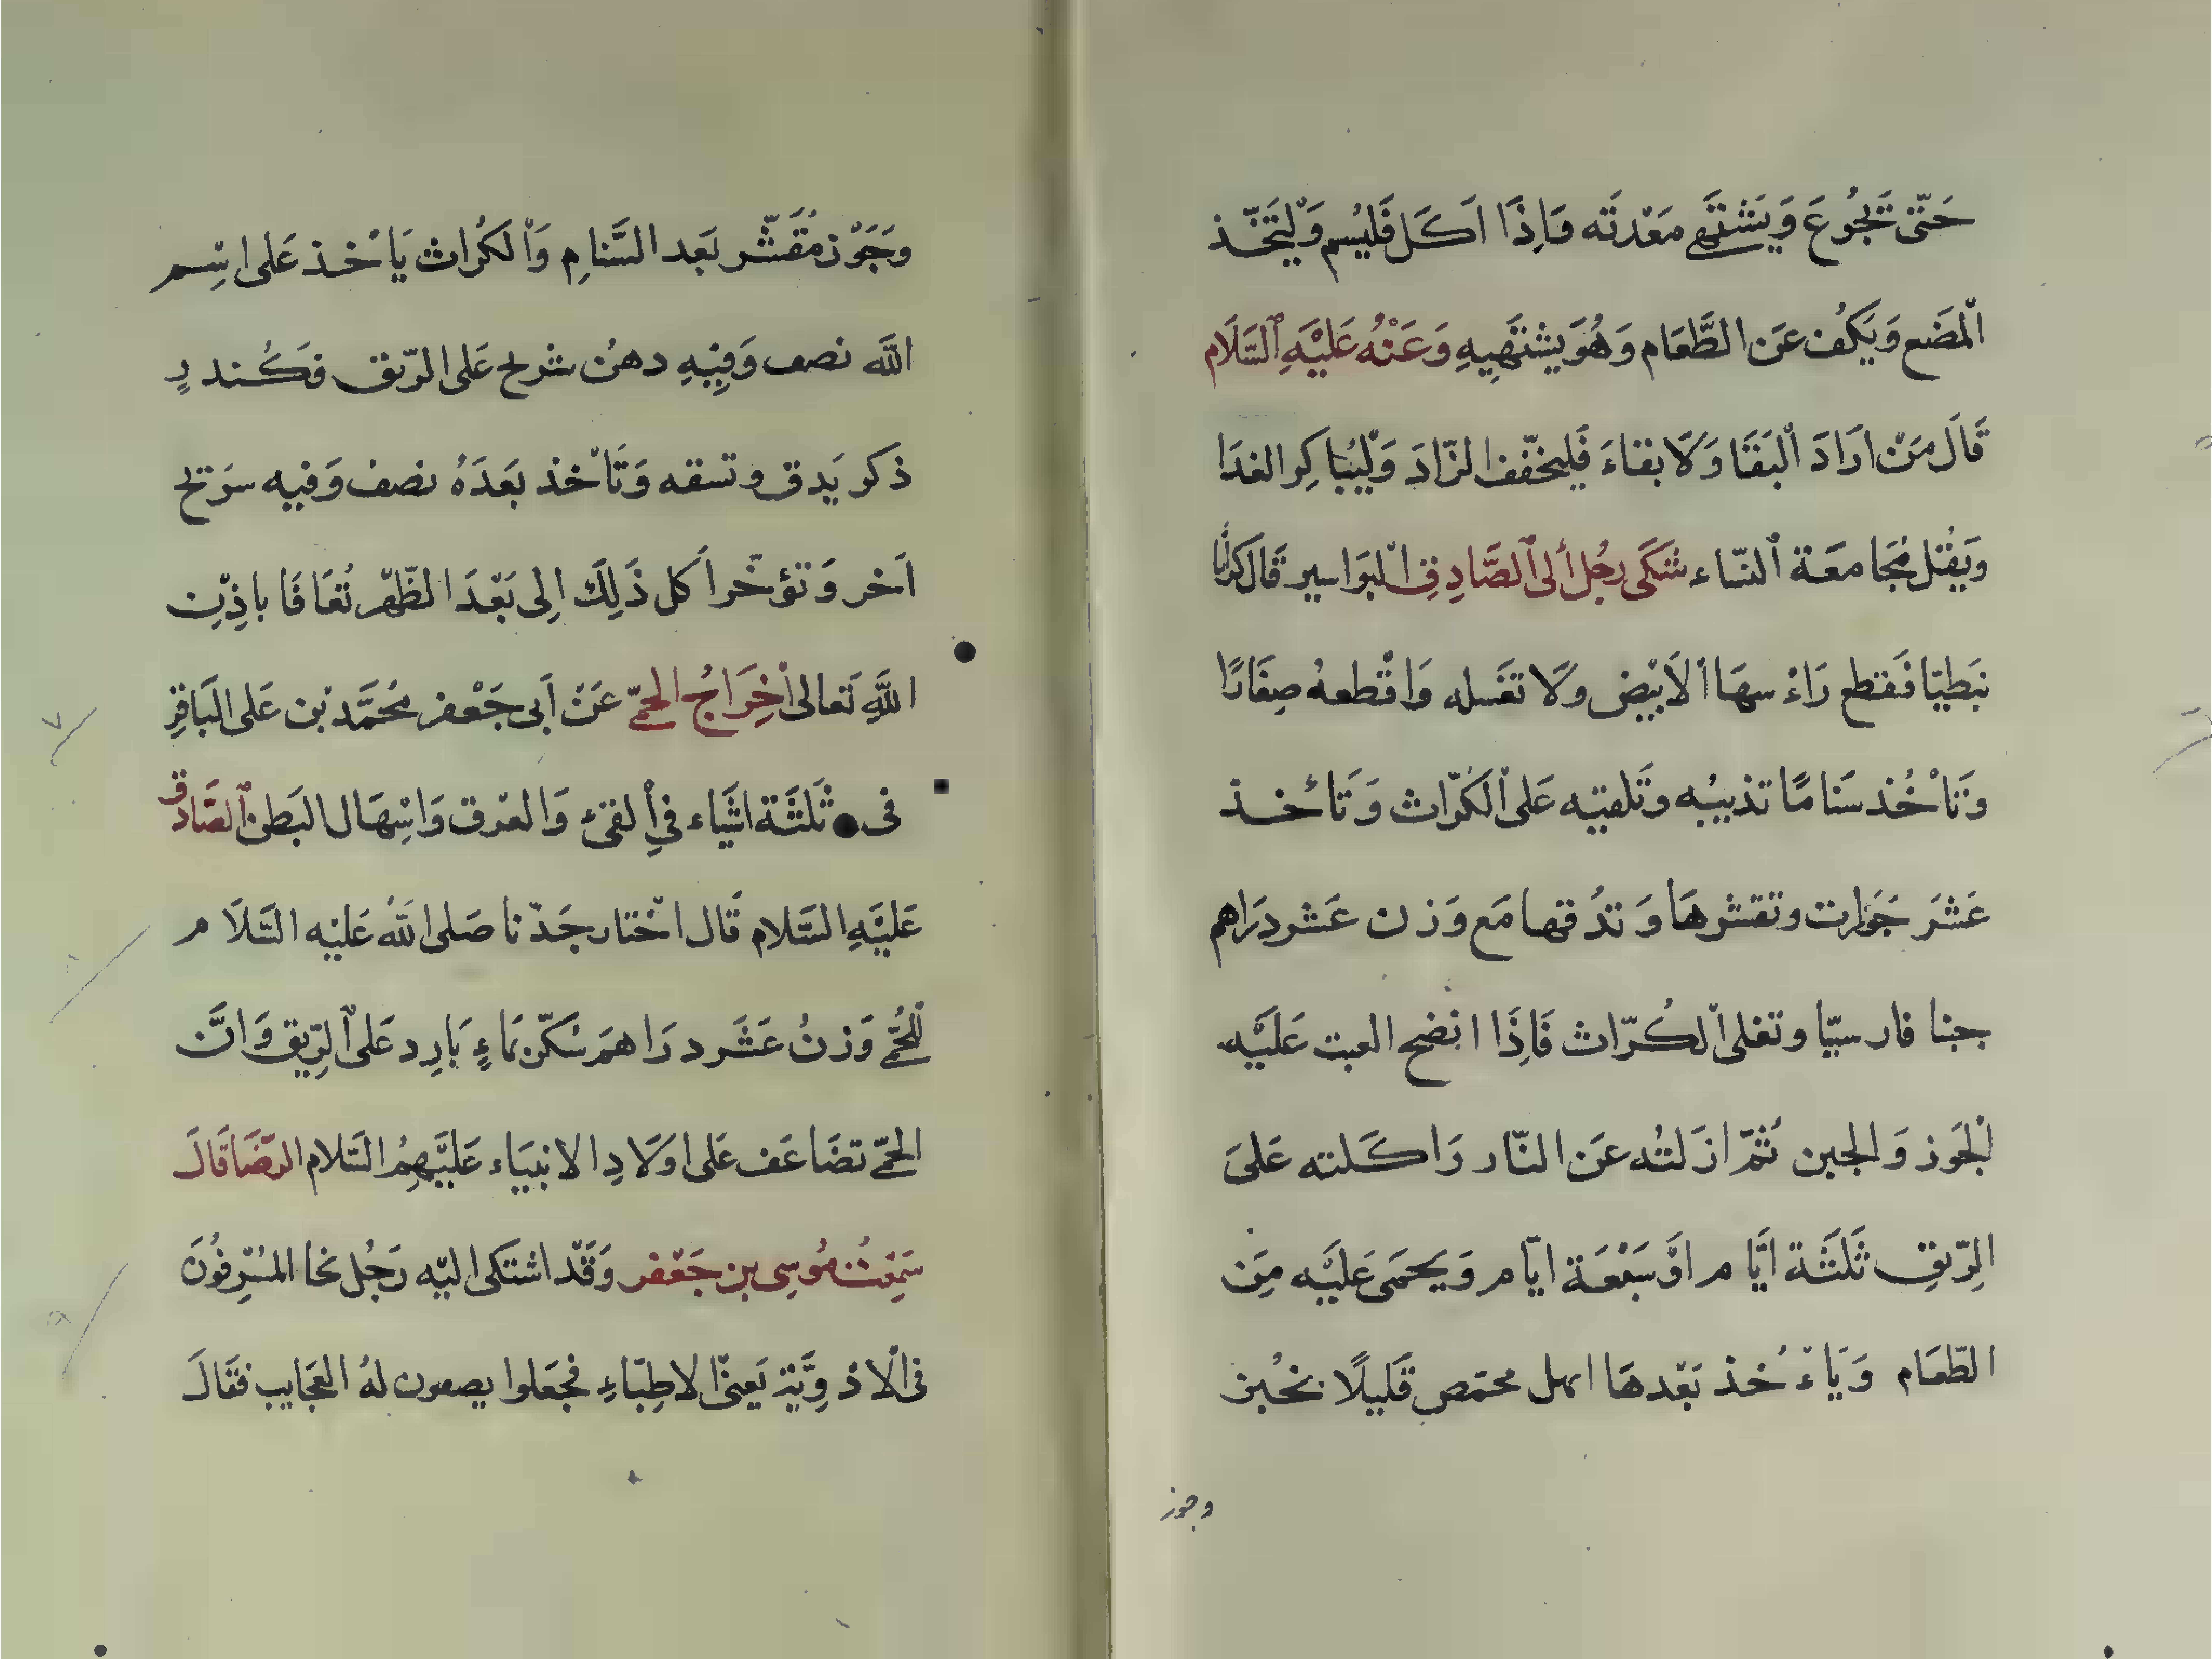 حَتّى تَجُوعَ وَيَشْتَهى مَعْدتَه وَاِذَا اَكَل فَليُسم وَلْيَتَخّذ
اْلمَضَع وَيَكُف عَن الطَّعَام وَهُوَ يشْتَهِيهِ وَعَنْهُ عَلَيْهِ السَّلَام
قَالَ مَنْ ارَادَ اْلبَقَا وَلَا بقاءَ فَليخفّف الزّادَ وَلْيُباكِر الغدَا
وَيَقُتل مُجَامعَة النسّاء شَكَى رجُل الى الصَّادِقِ اْلبَواسير قَال كرّاثا
نبَطيّا فَقطع رَاءْسهَا الاَبْيَض وَلَا تغَسله وَاقْطعهُ صِغَارًا
وَتَاْخُذ سَنَامًا تذيبُه وَتَلقيَه عَلى الكُرّاث وَتَاْخذ
عَشَرَ جَوَزات وتقشرهَا وَتدُقها مَع وَزن عَشر دَرَاهم
جبنا فارسيّا وتغلى الكُرّاث فَاِذَا انضج العبت عَليَه
الْجَوز وَالجبن ثُمّ ازَلتُه عَن النّار وَاكَلته عَلىَ
الرِّيقِ ثَلثَة ايَّام اوَ سَبْعَة ايّام وَيَحمَى عَليَه مِن
الطّعَام وَيَاءْخُذ بَعْدهَا اهل محمّص قَليلًا بخُبز
وجوز
وَجَوْز مُقَشّر بَعد السَّنامِ وَاْلكُراث يَاْخذ عَلى اسْم
اللَّه نصف وَفِيهِ دهنُ شرج عَلى الرّيق فكُندر
ذكر يَدق وتسفه وَتَاْخذ بَعَدَهُ نصف وَفيه سَرَج
اَخر وَتؤخّر اَكل ذَلِكَ اِلى بَعْدَ الظّهْر تُعَافَا باذِن
اللَّهِ تَعالى اْخِرَاجُ الحمّى عَنْ اَبى جَعْفر مُحمَّد بْن عَلى البَاقِرِ
فى ثَلثَة اشَياء فى الْقئ وَالعرَق وَاسْهَال البَطن الصَّادق
عَليَهِ السَّلام قَال اخْتار جَدّنا صَلى اللَّهُ عَليْه السَّلَام
للحُمّى وَزنُ عَشَر دَرَاهمَ سُكّر بَماءٍ بَارِد عَلى الرِّيق وَانَّ
الحمّى تضَاعَف عَلى اوَلَادِ الانبيَاء عَليَهِمُ السَّلام الرّضَا قَالَ
سَمِعْتُ مُوسى بن جَعْفر وَقَدْ اشتَكى اليْه رَجُل نحَا المُسْرِفُونَ
فى الْادْوِيَّة يَعنى الاطِبّاءِ فجَعَلوا يصفون لهُ العَجَايب فقَالَ